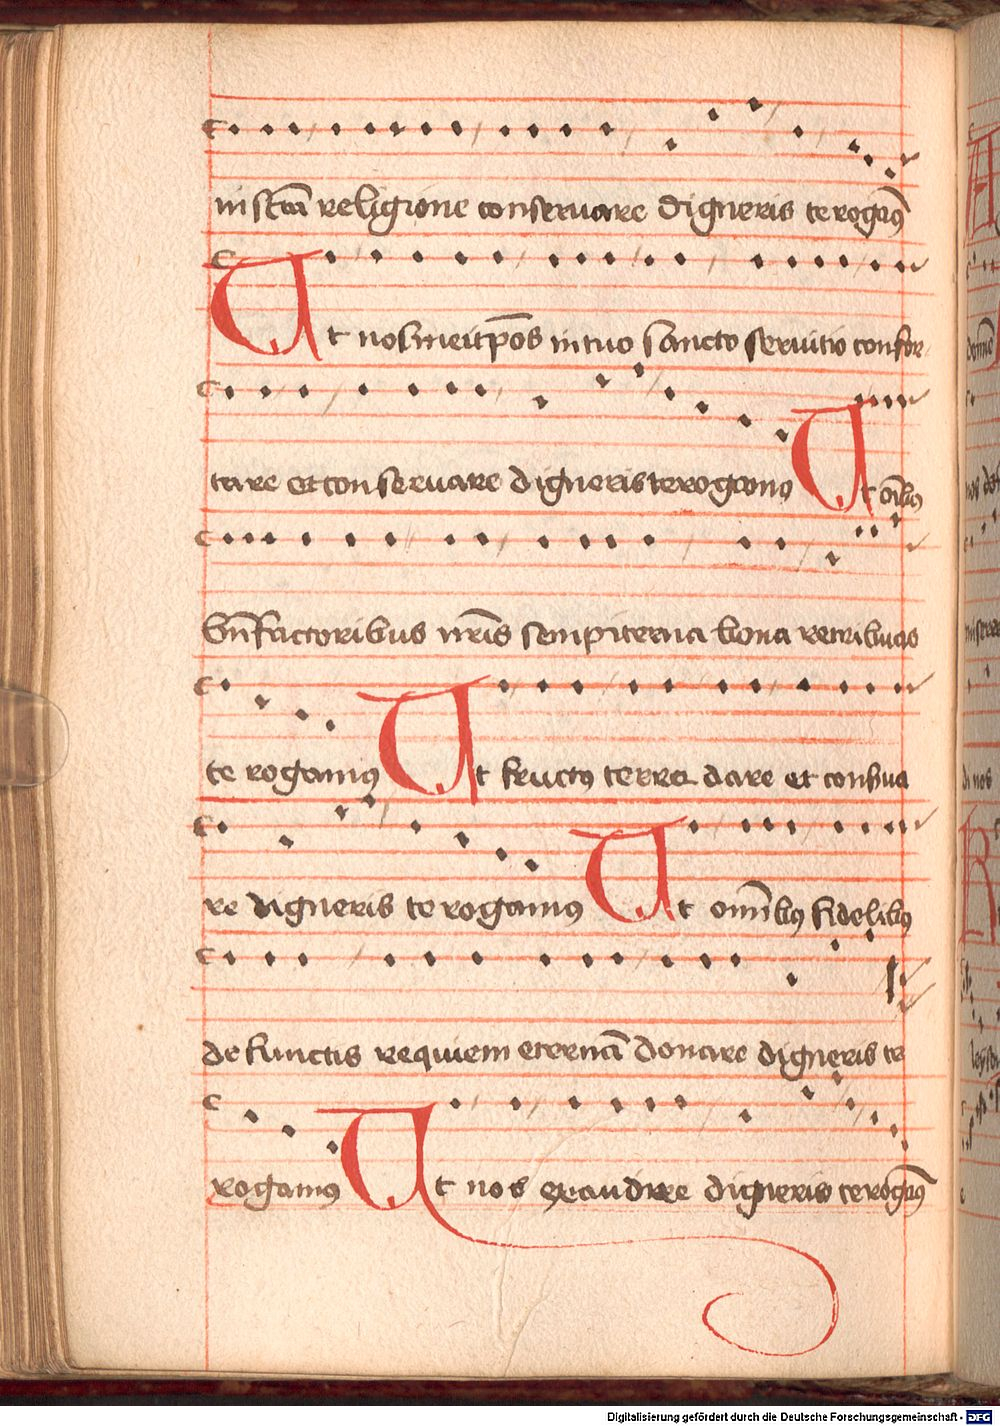 in sctā religione conseruare digneris te rogam⁹
Ut nosmeitp̄os in tuo sancto seruitio confor
tare et conseruare digneris te rogam⁹ Ut oīb⁹
bn̄factoribus nr̄is sempiterna bona retribuas
te rogam⁹ Ut fruct⁹ terre dare et conserua
re digneris te rogam⁹ Ut omīb⁹ fidelib⁹
defunctis requiem eternā donare digneris te
rogam⁹ Ut nos exaudire digneris te rogam⁹
Digitalisierung gefördert durch die Deutsche Forschungsgemeinschaft - DFG